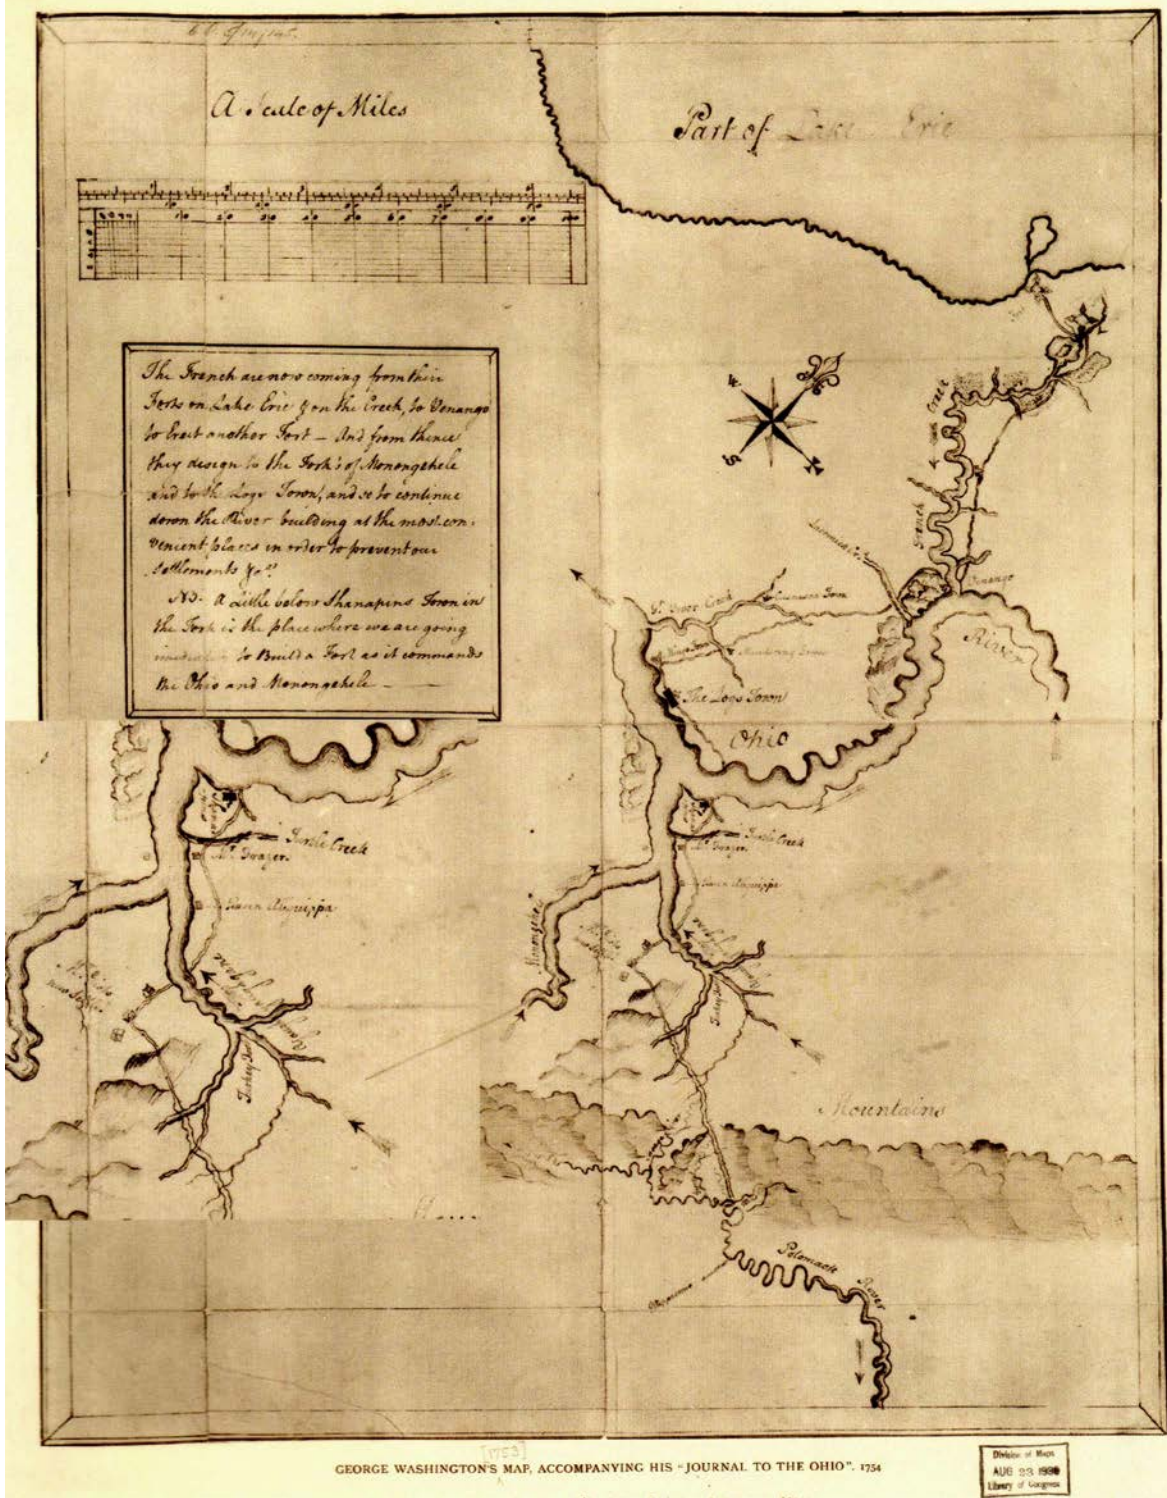 A Scale of Miles
Part of Lake Erie
The French are now coming from their
Forts on Lake Erie & on the Creek, to Venango
to Erect another Fort – And from thence
they design to the Fork's of Monongehele
and to the Logs Town, and so to continue
down the River building at the most con-
venient places in order to prevent our
Settlements &ca.
NB. A Little below Shanapins Town in
the Fork is the place where we are going
to Build a Fort as it commands
the Ohio and Monongehele
French Creek
Venango
River
The Logs Town
Ohio
Turtle Creek
Mr. Frazer
Queen Aliquippa
Turtle Creek
Mr. Frazer
Queen Aliquippa
Monongehele
Mountains
Potomack River
[1753]
GEORGE WASHINGTON'S MAP, ACCOMPANYING HIS "JOURNAL TO THE OHIO". 1754
Division of Maps
AUG 23 1930
Library of Congress